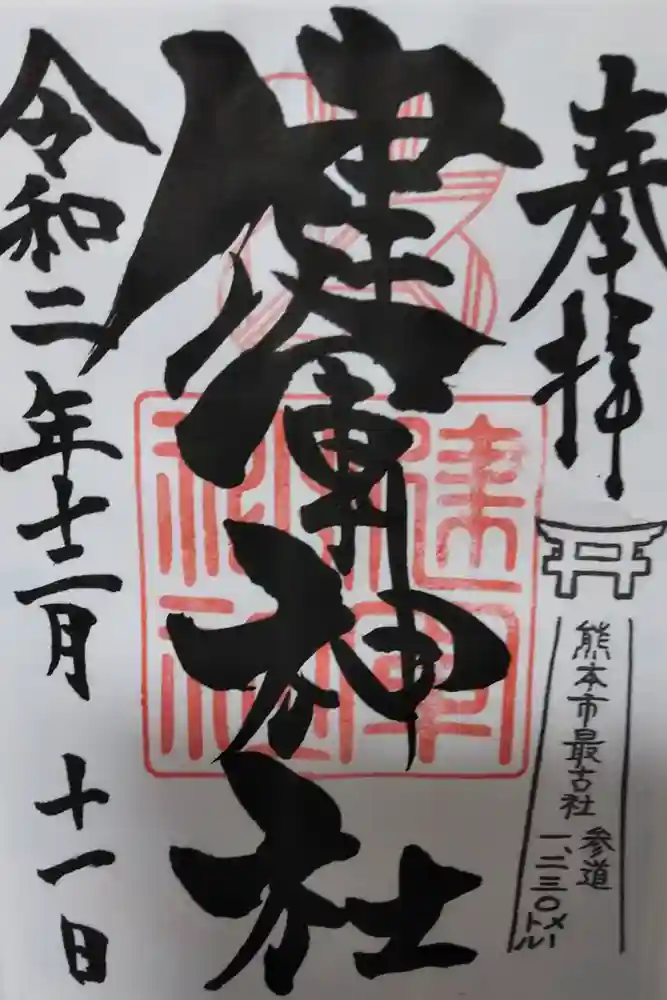 奉拝
熊本市最古社
参道
一、二三〇メートル
健軍神社
健軍神社
令和二年十二月十一日